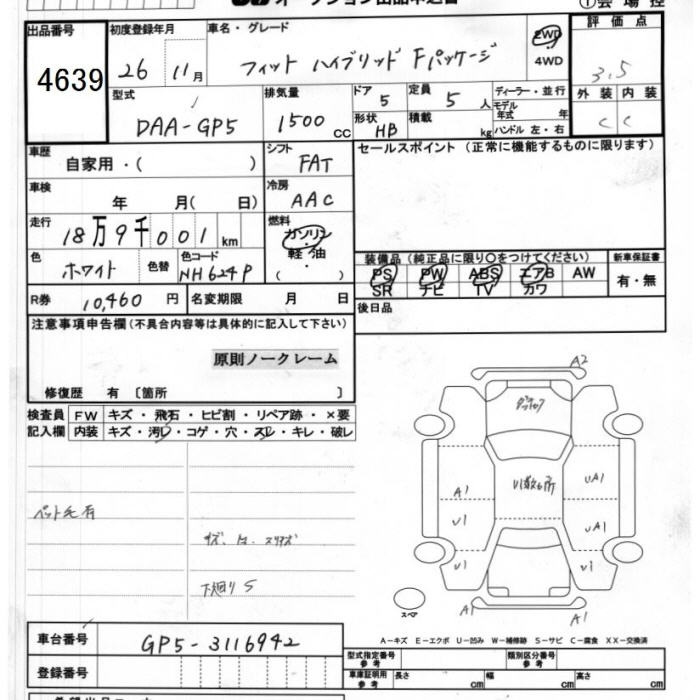 オークション出品申込書
①会場控
出品番号
4639
初度登録年月
26 11月
車名・グレード
フィット ハイブリッド Fパッケージ
2WD
4WD
評価点
3.5
外装 内装
C C
型式
DAA-GP5
排気量
1500 cc
ドア 5
形状 HB
定員 5 人
積載 kg
ディーラー・並行
モデル年式 年
ハンドル 左・右
車歴
自家用・( )
シフト
FAT
セールスポイント (正常に機能するものに限ります)
車検
年 月( 日)
冷房
AAC
走行
18万9千001km
燃料
ガソリン
軽油
( )
色
ホワイト
色替
色コード
NH624P
装備品 (純正品に限り○をつけてください)
PS PW ABS エアB AW
SR ナビ TV カワ
新車保証書
有・無
R券 10,460 円
名変期限 月 日
後日品
注意事項申告欄(不具合内容等は具体的に記入して下さい)
原則ノークレーム
修復歴 有 〔箇所 〕
検査員記入欄
FW キズ・飛石・ヒビ割・リペア跡・×要
内装 キズ・汚レ・コゲ・穴・スレ・キレ・破レ
ペット毛有
下廻りS
A2
A1
U1
U1
UA1
UA1
U1
スペア
A1
A1
A-キズ E-エクボ U-凹み W-補修跡 S-サビ C-腐食 XX-交換済
車台番号
GP5-3116942
登録番号
型式指定番号 参考
類別区分番号 参考
車庫証明用 参考
長さ cm
幅 cm
高さ cm